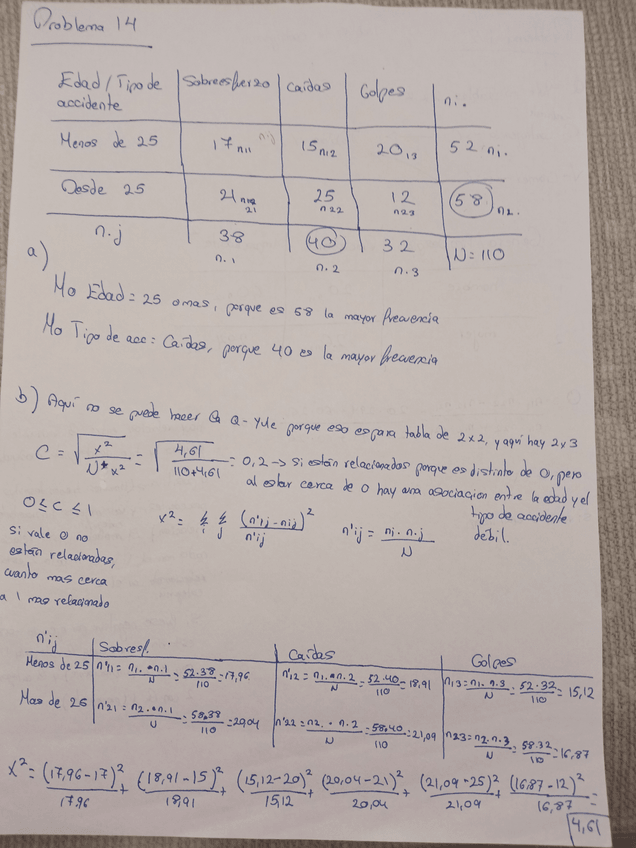 Problema 14
Edad/Tipo de accidente | Sobreesfuerzo | Caídas | Golpes | ni.
Menos de 25 | 17 n11 | 15 n12 | 20 13 | 52 n1.
Desde 25 | 21 21 | 25 n22 | 12 n23 | 58 n2.
n.j | 38 n.1 | 40 n.2 | 32 n.3 | N=110
a)
Mo Edad = 25 o mas, porque es 58 la mayor frecuencia
Mo Tipo de acc: Caídas, porque 40 es la mayor frecuencia
b) Aquí no se puede hacer la Q-Yule porque eso es para tabla de 2x2, y aquí hay 2x3
C = √(x²/(N+x²)) = √(4,61/(110+4,61)) = 0,2 → si están relacionados porque es distinto de 0, pero
al estar cerca de 0 hay una asociacion entre la edad y el
tipo de accidente
debil.
0 ≤ c ≤ 1
si vale 0 no
están relacionadas,
cuanto mas cerca
a 1 mas relacionado
x² = Σi Σj (n'ij - nij)²/n'ij
n'ij = ni. n.j/N
n'ij | Sobresf. | Caídas | Golpes
Menos de 25 | n'11 = n1. • n.1/N = 52.38/110 = 17,96 | n'12 = n1. • n.2/N = 52.40/110 = 18,91 | n13 = n1. n.3/N = 52.32/110 = 15,12
Mas de 26 | n'21 = n2. • n.1/N = 58.38/110 = 20,04 | n'22 = n2. • n.2/N = 58.40/110 = 21,09 | n23 = n2. n.3/N = 58.32/110 = 16,87
x² = (17,96-17)²/17,96 + (18,91-15)²/18,91 + (15,12-20)²/15,12 + (20,04-21)²/20,04 + (21,09-25)²/21,09 + (16,87-12)²/16,87 =
4,61